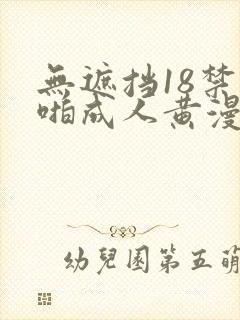 無遮挡18禁
啪成人黄漫
幼兒園第五萌